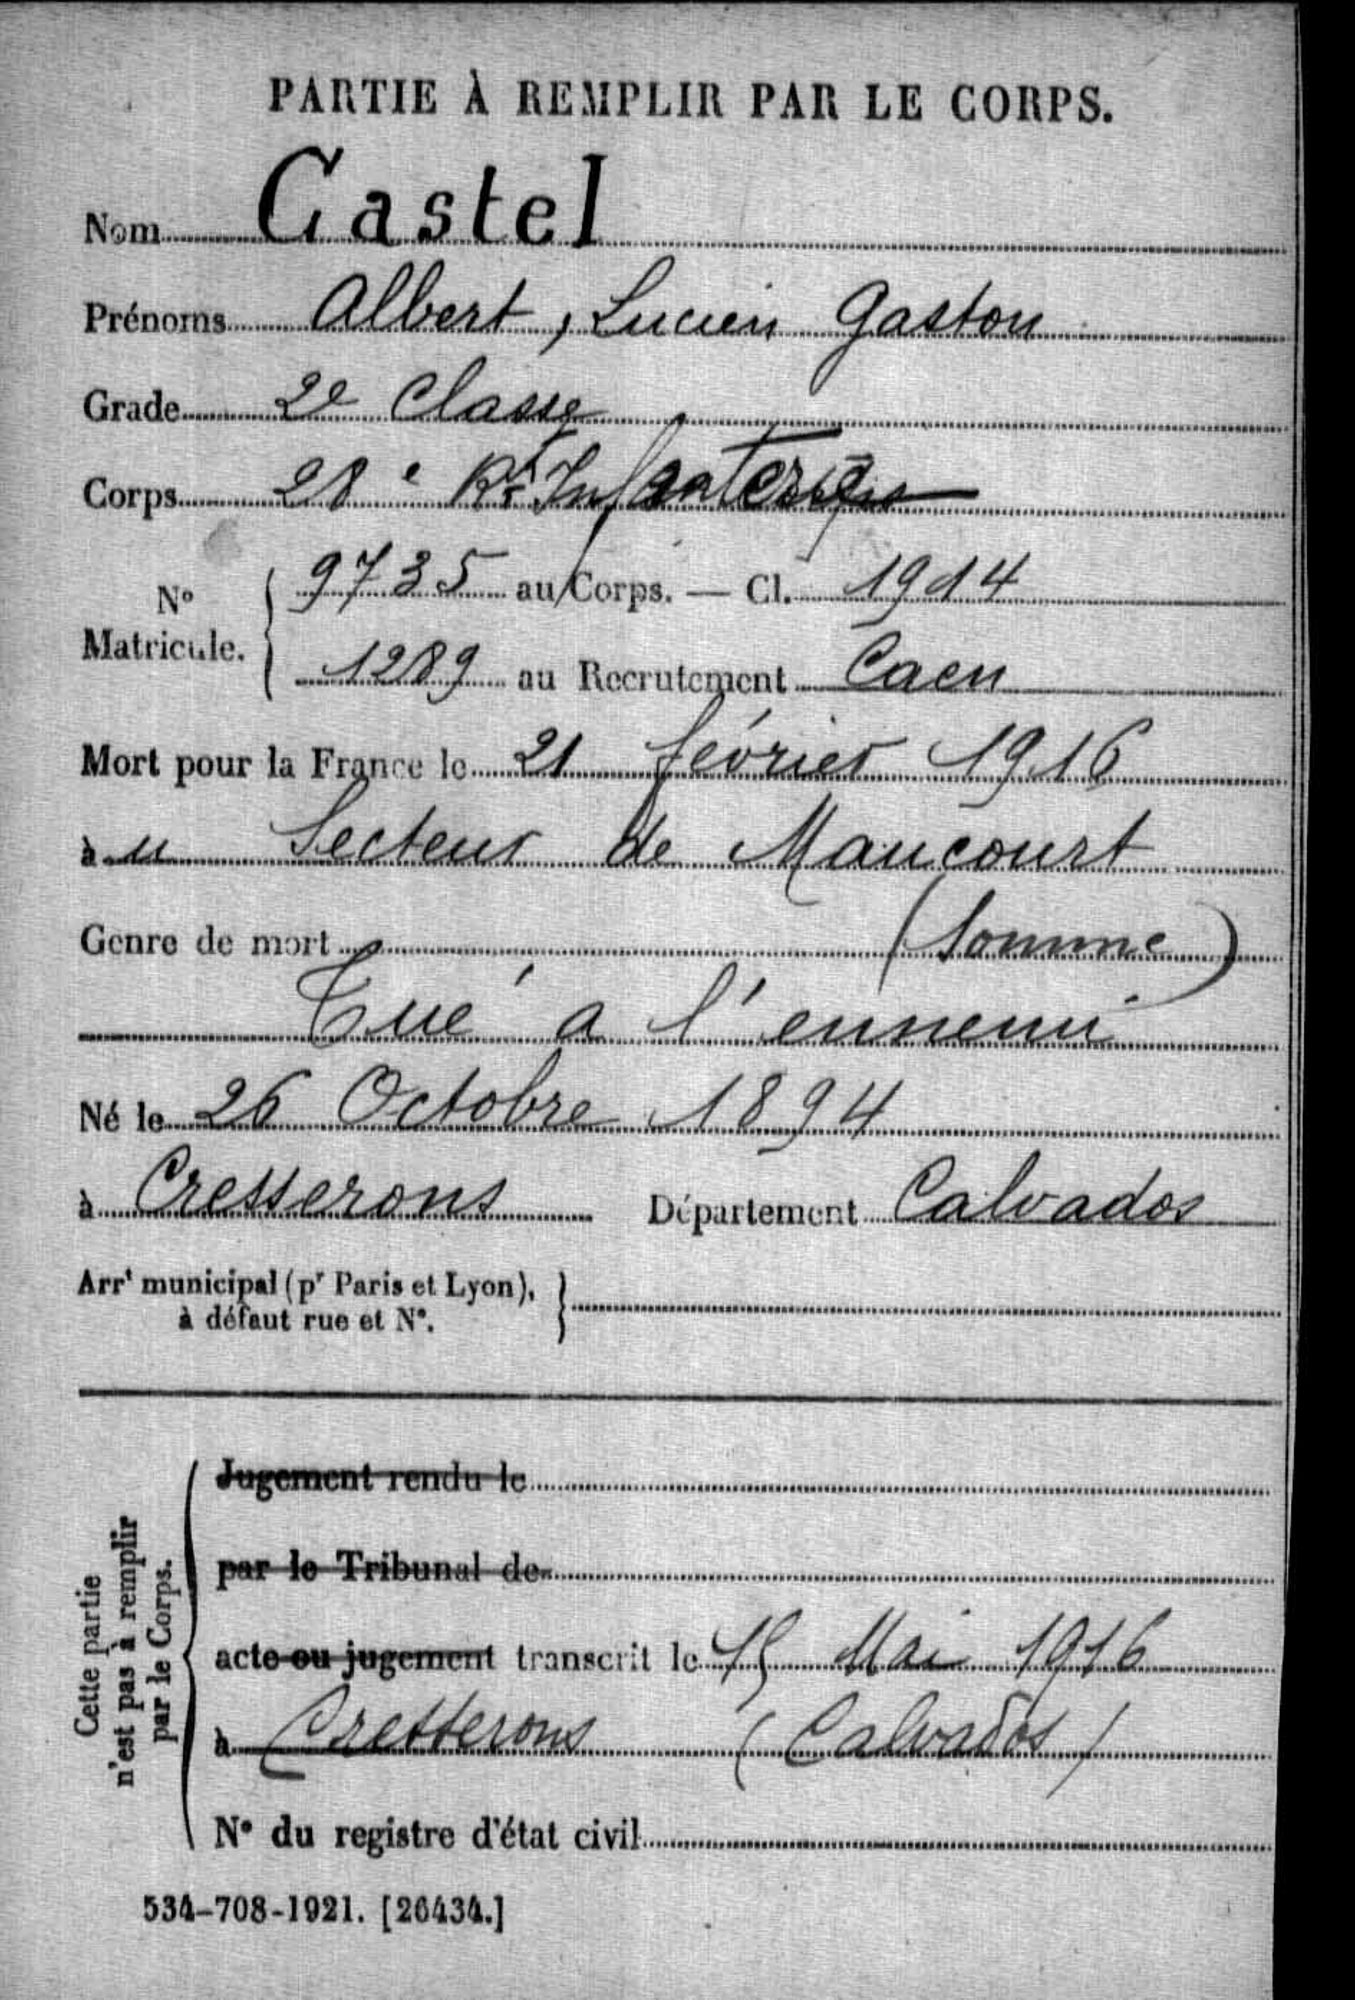 PARTIE À REMPLIR PAR LE CORPS.
Nom Castel
Prénoms Albert, Lucien Gaston
Grade 2e Classe
Corps 28e Rt Infanterie
N° Matricule. { 9735 au Corps. — Cl. 1914
1289 au Recrutement Caen
Mort pour la France le 21 février 1916
à u Secteur de Maucourt
Genre de mort (Somme)
Tué à l'ennemi
Né le 26 Octobre 1894
à Cresserons Département Calvados
Arrt municipal (pr Paris et Lyon), à défaut rue et N°. }
Cette partie n'est pas à remplir par le Corps.
Jugement rendu le
par le Tribunal de
acte ou jugement transcrit le 15 Mai 1916
à Cresserons (Calvados)
N° du registre d'état civil
534-708-1921. [26434.]